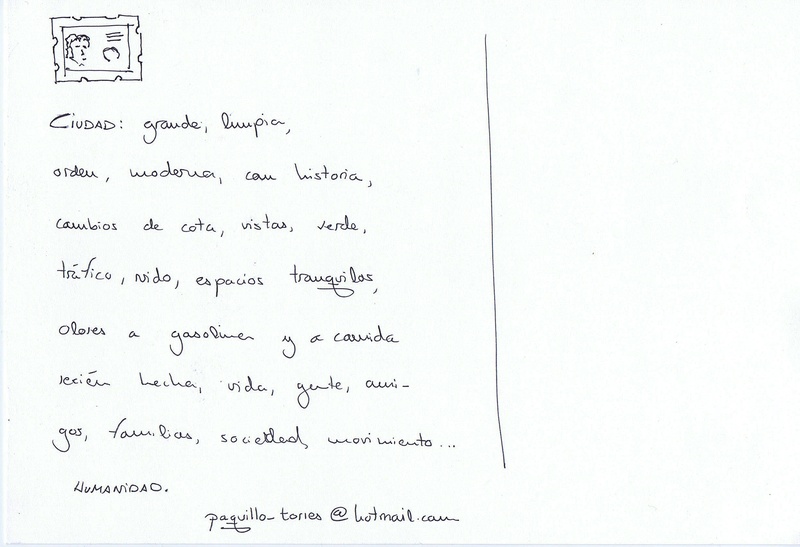 CIUDAD: grande, limpia,
orden, moderna, con historia,
cambios de cota, vistas, verde,
tráfico, ruido, espacios tranquilos,
olores a gasolina y a comida
recién hecha, vida, gente, ami-
gos, familias, sociedad, movimiento...
HUMANIDAD.
paquillo_torres@hotmail.com